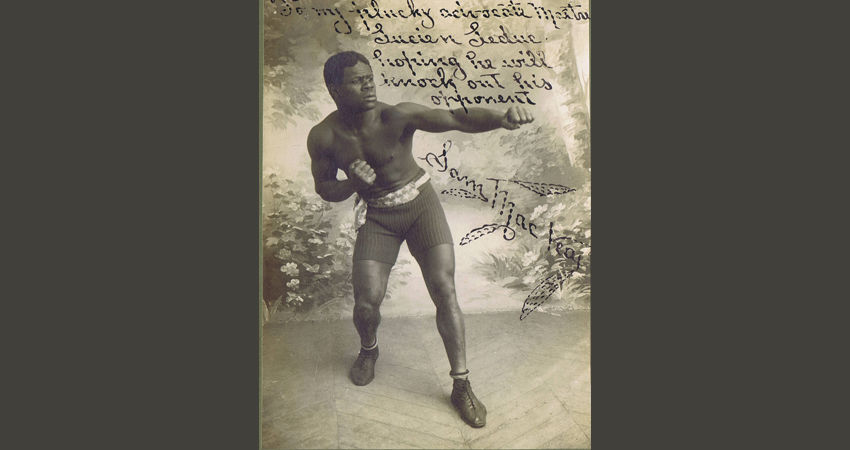 To my plucky advocate Maitre
Lucien Leduc
hoping he will
knock out his
opponent
Sam Mac Vea